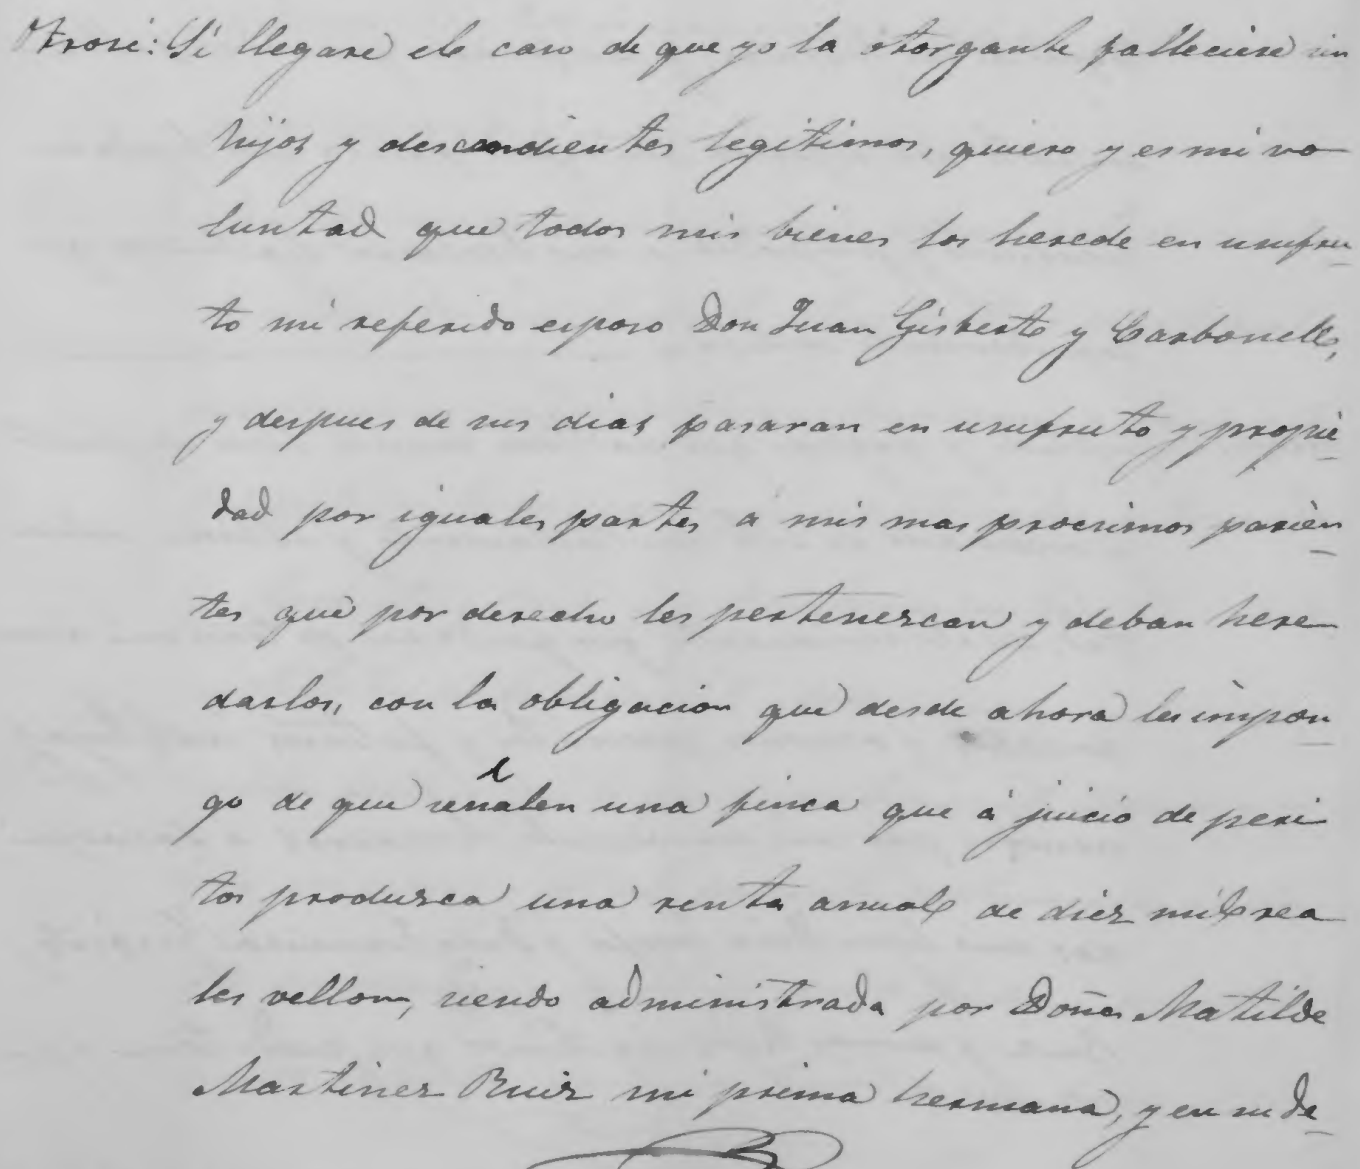 Otrosi: Si llegare el caso de que yo la otorgante falleciese sin
hijos y descendientes legitimos, quiero y es mi vo
luntad que todos mis bienes los herede en usufru-
to mi referido esposo Don Juan Gisberto y Carbonell,
y despues de sus dias pasaran en usufruto y propie-
dad por iguales partes á mis mas procsimos parien-
tes que por derecho les pertenezcan y deban here
darlos, con la obligacion que desde ahora les impon-
go de que señalen una finca que á juicio de peri
tos produzca una renta anual de diez mil rea
les vellon, siendo administrada por Doña Matilde
Martinez Ruiz mi prima hermana, y en su de-